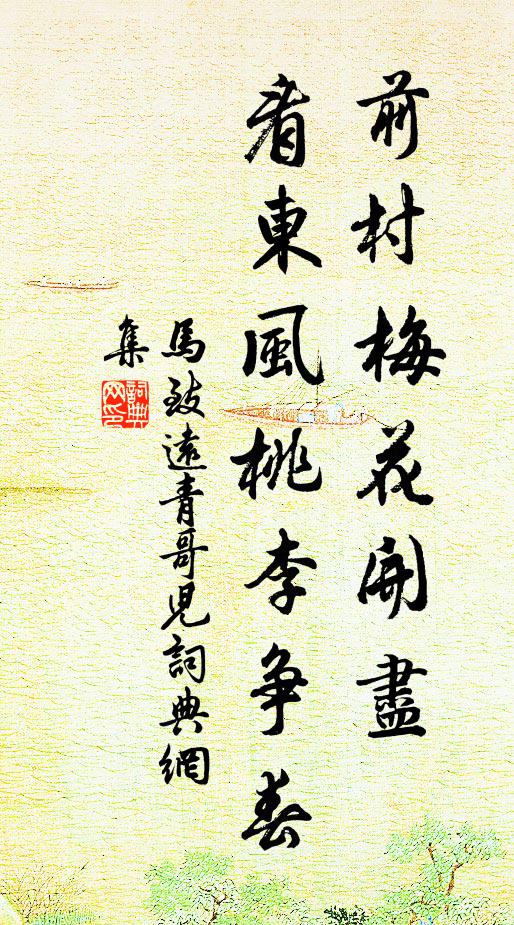 前村梅花開盡
看東風桃李争春
馬致遠青哥兒詞典網
集
詞典
网印